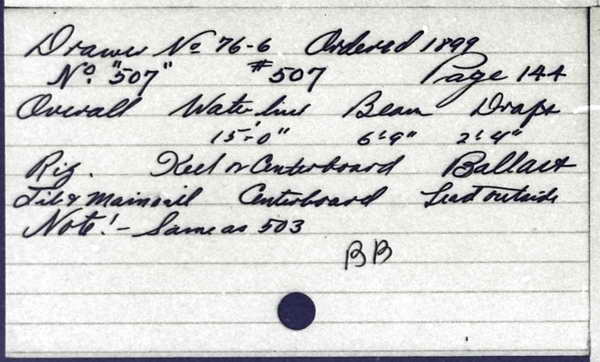 Drawer No 76-6 Ordered 1899
No. "507" #507 Page 144
Overall Waterline Beam Draft
15'-0" 6'-9" 2'-4"
Rig. Keel or Centerboard Ballast
Jib & Mainsail Centerboard Lead outside
Note! - Same as 503
BB